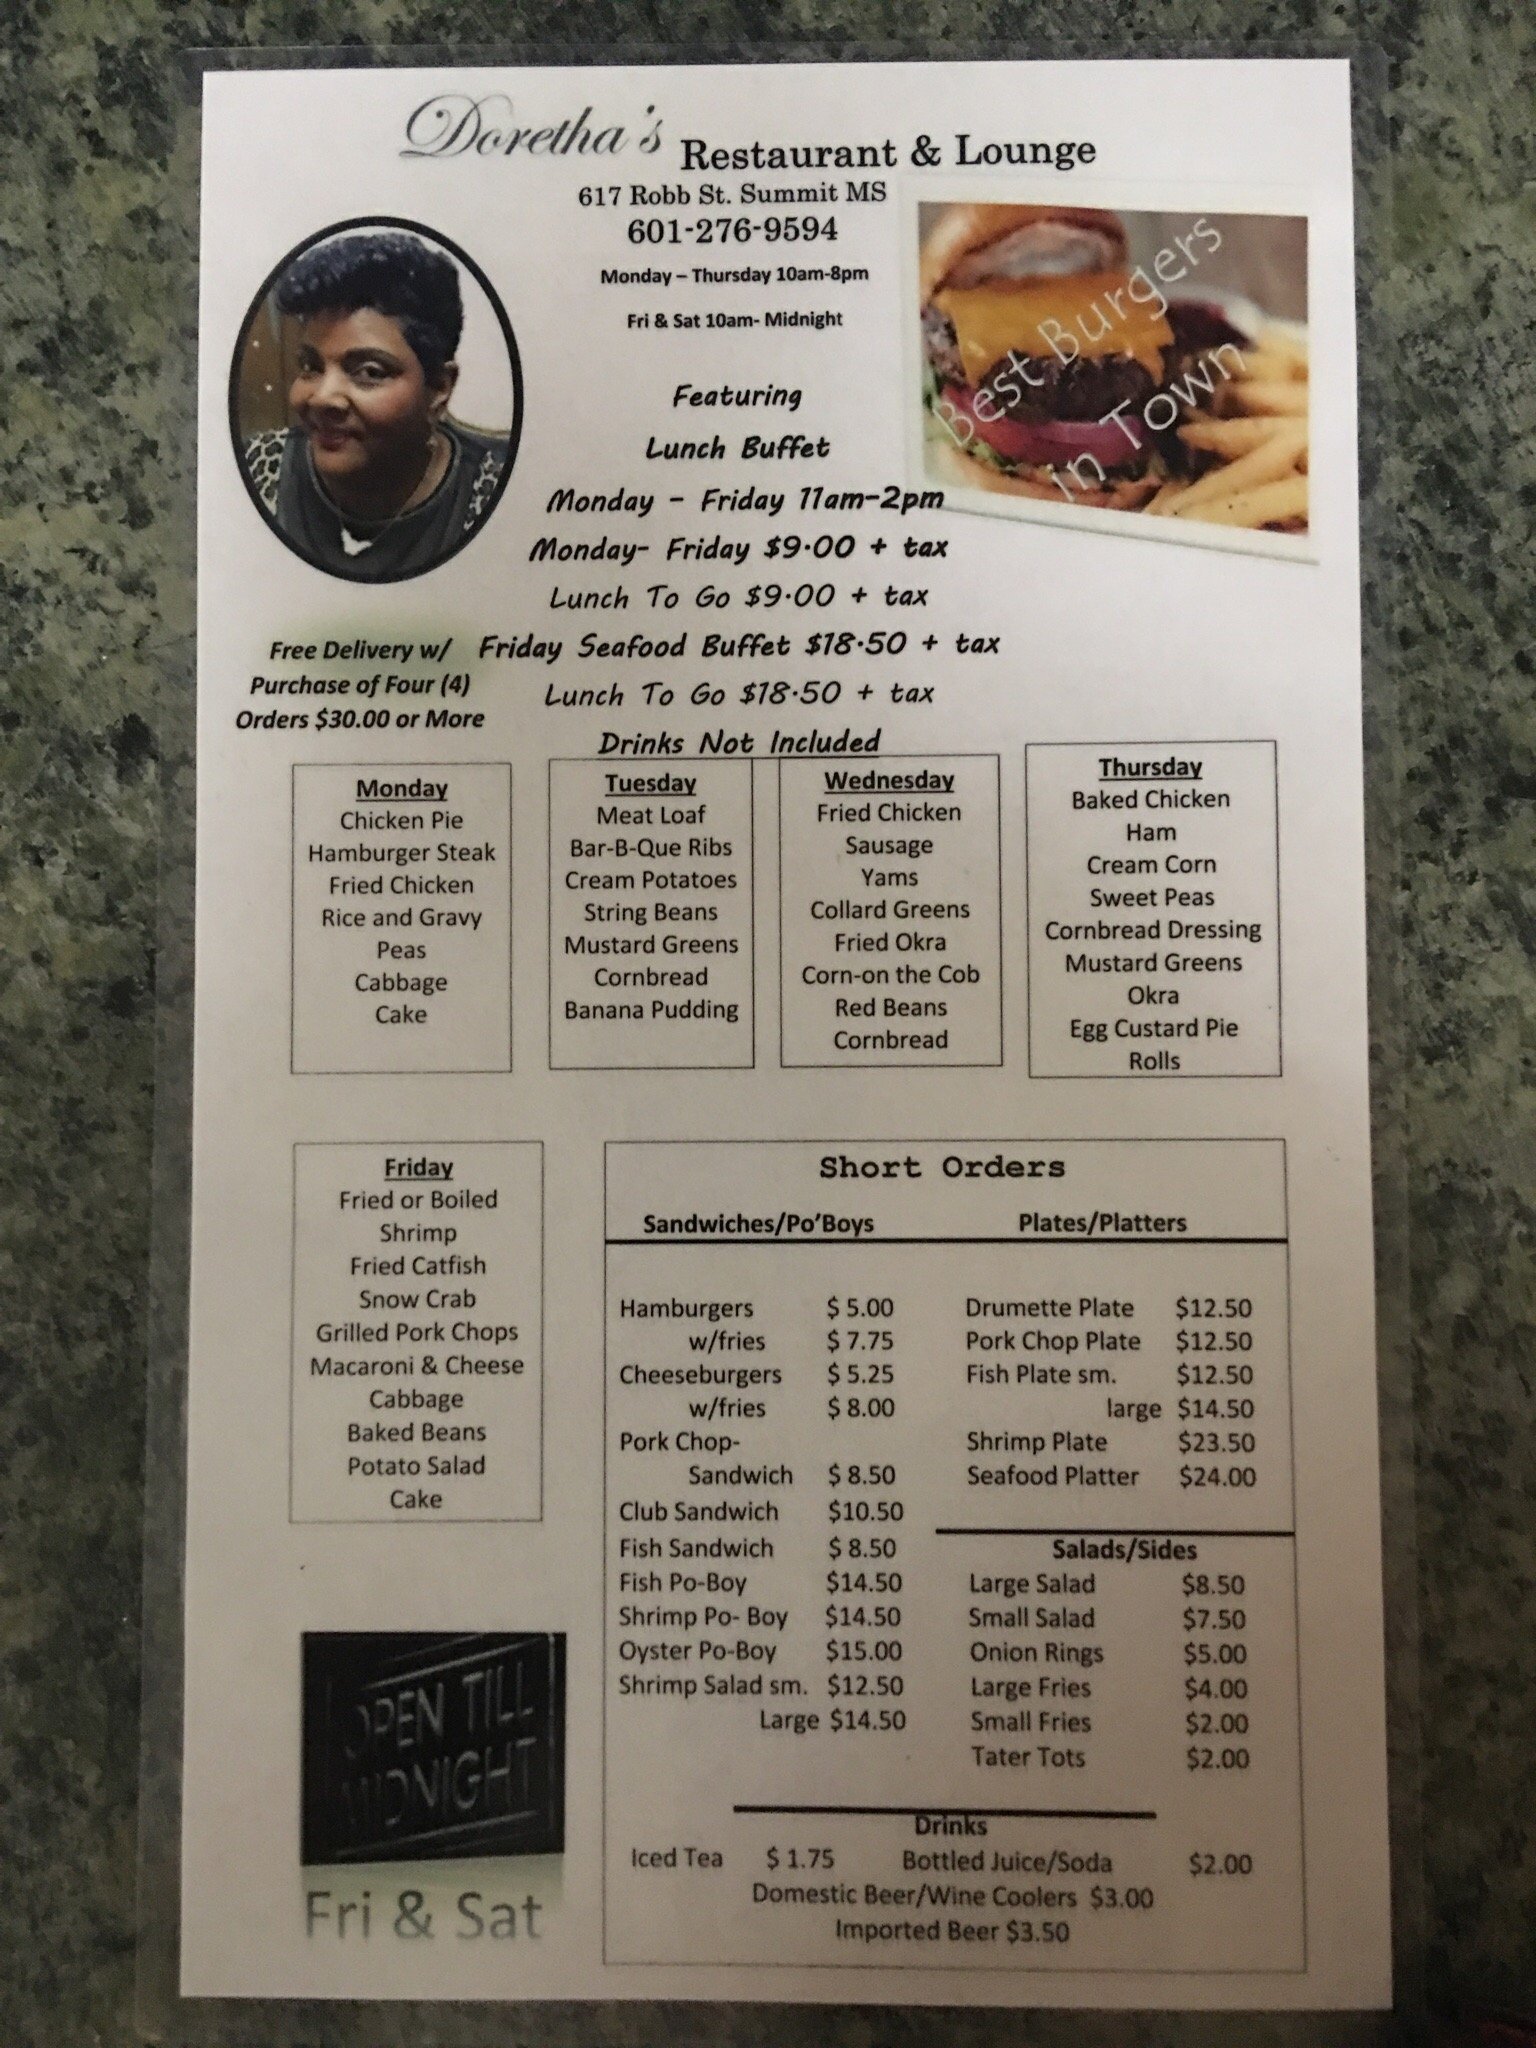 Doretha's Restaurant & Lounge
617 Robb St. Summit MS
601-276-9594
Monday – Thursday 10am-8pm
Fri & Sat 10am- Midnight
Best Burgers
in Town
Featuring
Lunch Buffet
Monday - Friday 11am-2pm
Monday- Friday $9.00 + tax
Lunch To Go $9.00 + tax
Friday Seafood Buffet $18.50 + tax
Lunch To Go $18.50 + tax
Drinks Not Included
Free Delivery w/
Purchase of Four (4)
Orders $30.00 or More
Monday
Chicken Pie
Hamburger Steak
Fried Chicken
Rice and Gravy
Peas
Cabbage
Cake
Tuesday
Meat Loaf
Bar-B-Que Ribs
Cream Potatoes
String Beans
Mustard Greens
Cornbread
Banana Pudding
Wednesday
Fried Chicken
Sausage
Yams
Collard Greens
Fried Okra
Corn-on the Cob
Red Beans
Cornbread
Thursday
Baked Chicken
Ham
Cream Corn
Sweet Peas
Cornbread Dressing
Mustard Greens
Okra
Egg Custard Pie
Rolls
Friday
Fried or Boiled
Shrimp
Fried Catfish
Snow Crab
Grilled Pork Chops
Macaroni & Cheese
Cabbage
Baked Beans
Potato Salad
Cake
Short Orders
Sandwiches/Po'Boys
Hamburgers $ 5.00
w/fries $ 7.75
Cheeseburgers $ 5.25
w/fries $ 8.00
Pork Chop-
Sandwich $ 8.50
Club Sandwich $10.50
Fish Sandwich $ 8.50
Fish Po-Boy $14.50
Shrimp Po- Boy $14.50
Oyster Po-Boy $15.00
Shrimp Salad sm. $12.50
Large $14.50
Plates/Platters
Drumette Plate $12.50
Pork Chop Plate $12.50
Fish Plate sm. $12.50
large $14.50
Shrimp Plate $23.50
Seafood Platter $24.00
Salads/Sides
Large Salad $8.50
Small Salad $7.50
Onion Rings $5.00
Large Fries $4.00
Small Fries $2.00
Tater Tots $2.00
Drinks
Iced Tea $ 1.75 Bottled Juice/Soda $2.00
Domestic Beer/Wine Coolers $3.00
Imported Beer $3.50
OPEN TILL
MIDNIGHT
Fri & Sat